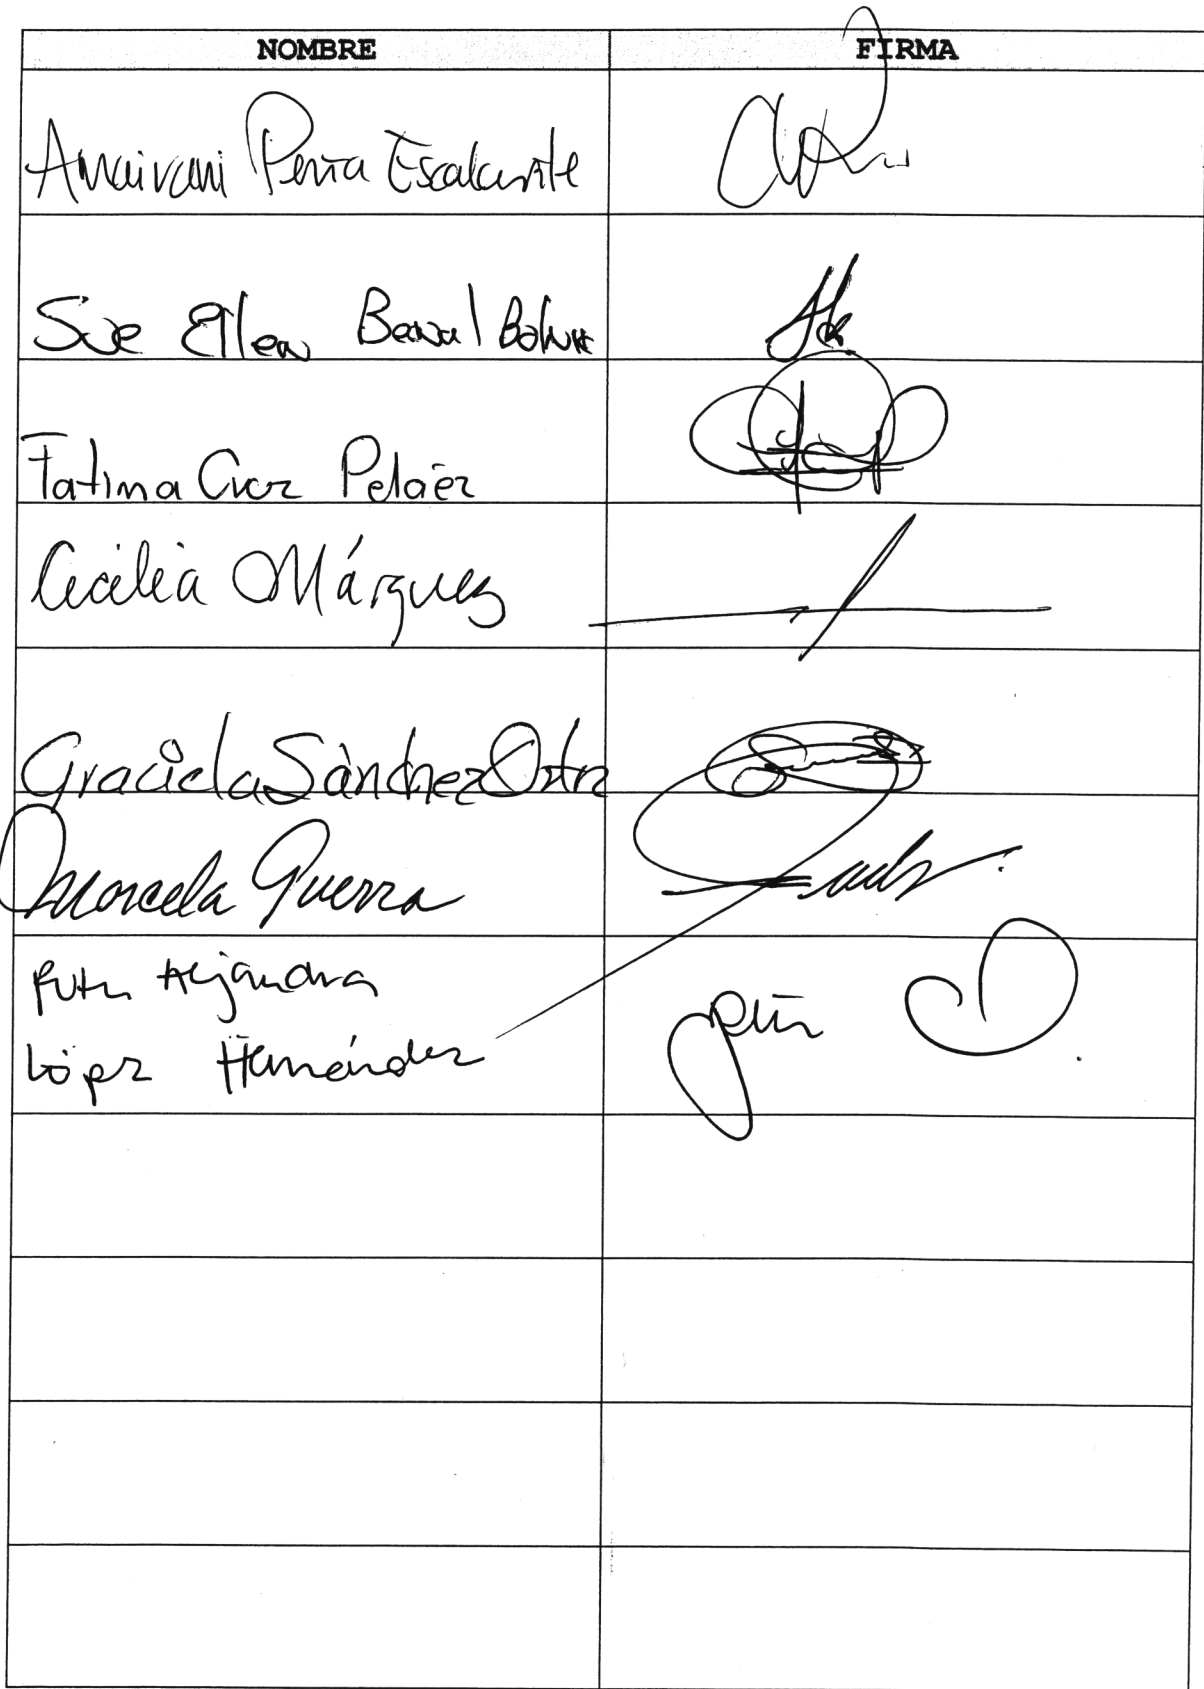 NOMBRE FIRMA
Anaivani Peña Escalante
Sue Ellen Bernal
Fatima Cruz Peláez
Cecilia Márquez
Graciela Sánchez
Marcela Guerra
Ruth Alejandra
López Hernández